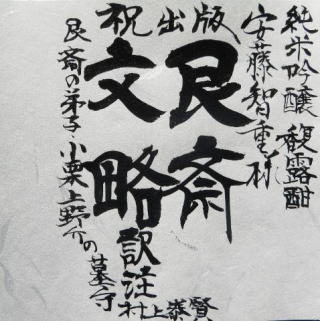 純米吟醸 馥露酣
安藤智重様
祝出版
艮斎
文略
訳注
村上泰賢
艮斎の弟子・小栗上野介の墓寺